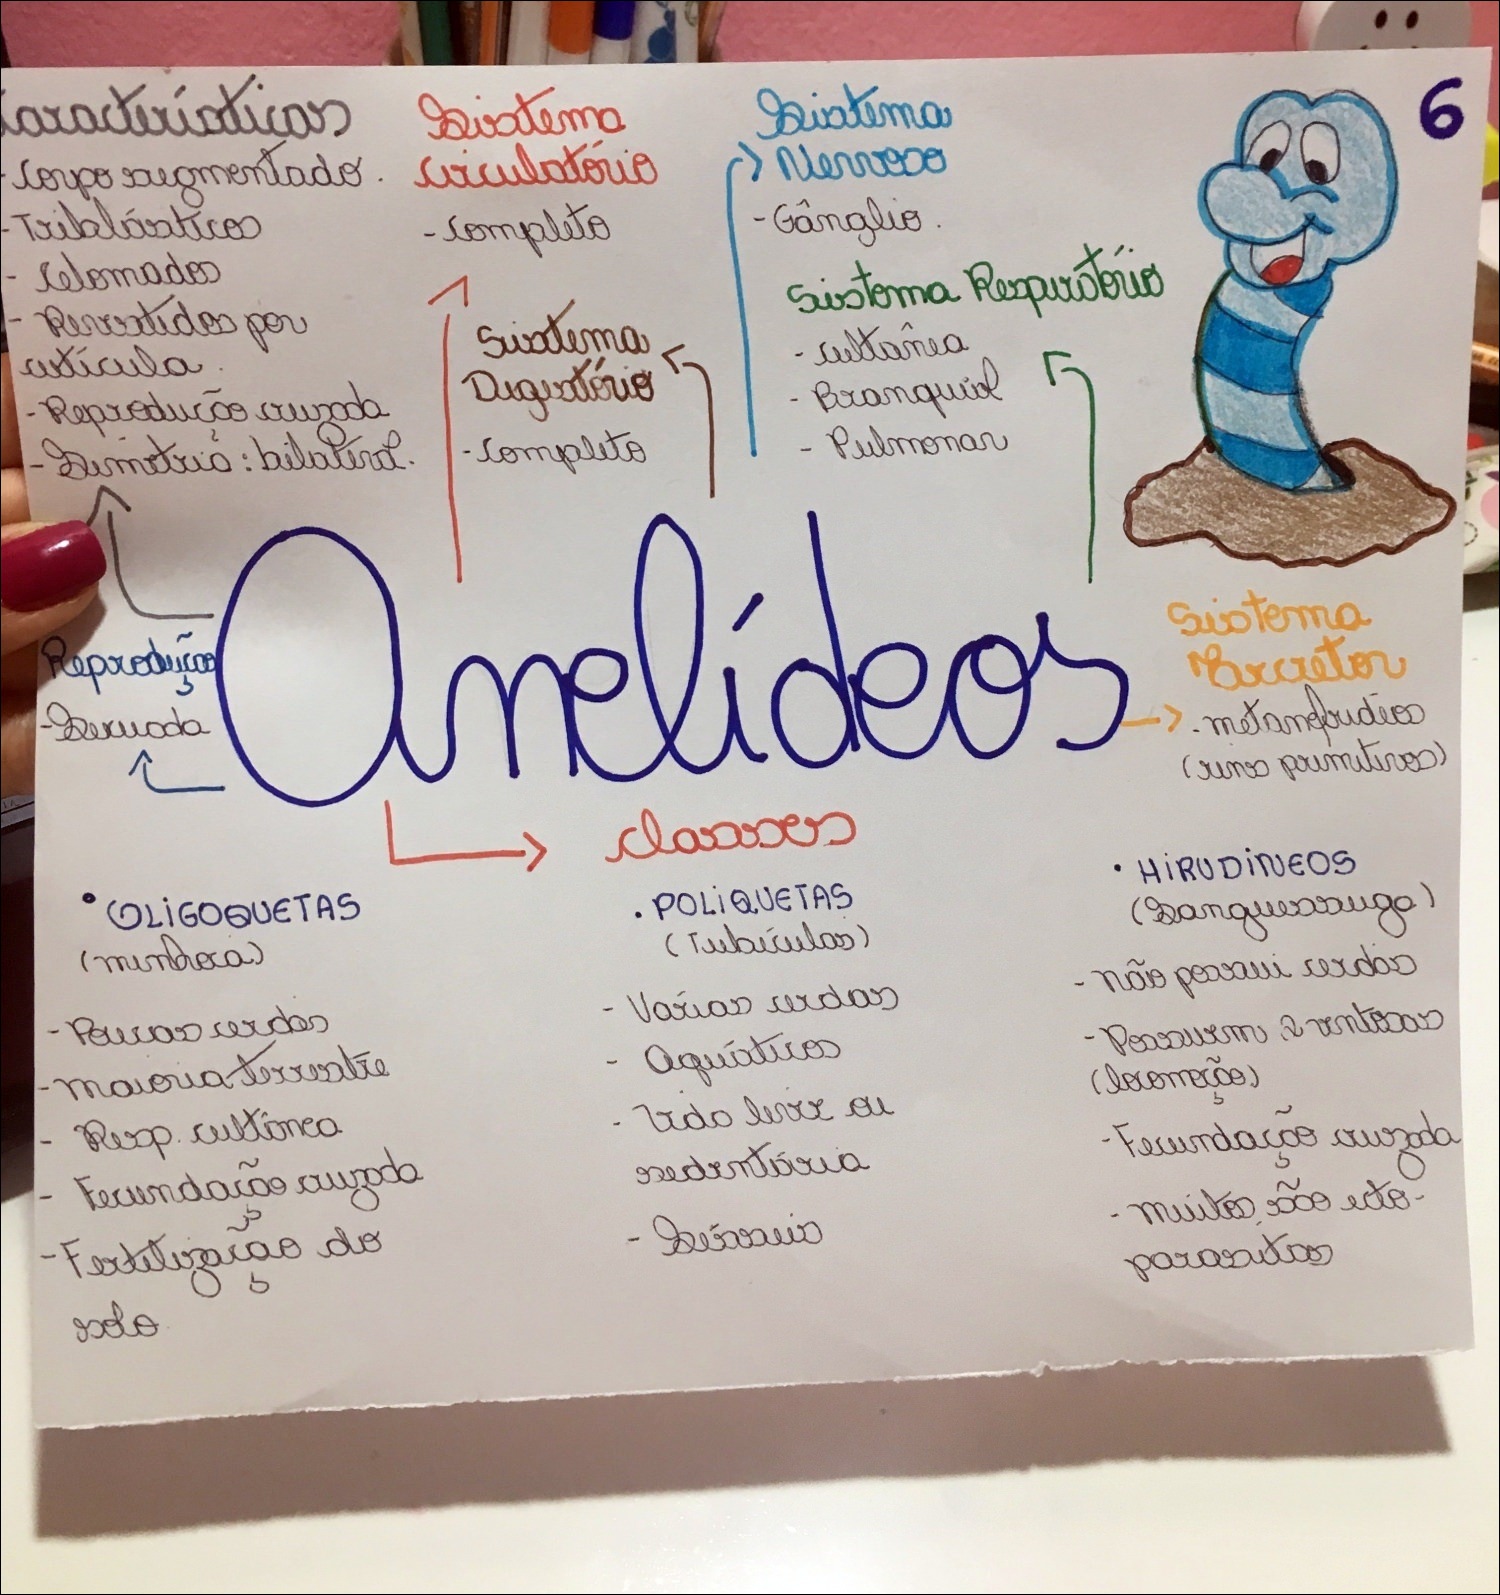 Características
- Corpo segmentado.
- Triblásticos
- Celomados
- Revestidos por
cutícula.
- Reprodução cruzada
- Simetria: bilateral.
Sistema
Circulatório
- Completo
Sistema
Digestório
- Completo
Sistema
Nervoso
- Gânglio.
Sistema Respiratório
- cultânea
- Branquial
- Pulmonar
6
Anelídeos
Reprodução
- Sexuada
Sistema
Excretor
- metanefrídeos
(rins primitivos)
Classes
• OLIGOQUETAS
(minhoca)
- Poucas cerdas
- Maioria terrestre
- Resp. cultânea
- Fecundação cruzada
- Fertilização do
solo
• POLIQUETAS
(Tubículas)
- Várias cerdas
- Aquáticos
- Vida livre ou
sedentária
- Sésseis
• HIRUDINEOS
(Sanguessuga)
- não possui cerdas
- Possuem 2 ventosas
(locomoção)
- Fecundação cruzada
- Muitos são ecto-
parasitas